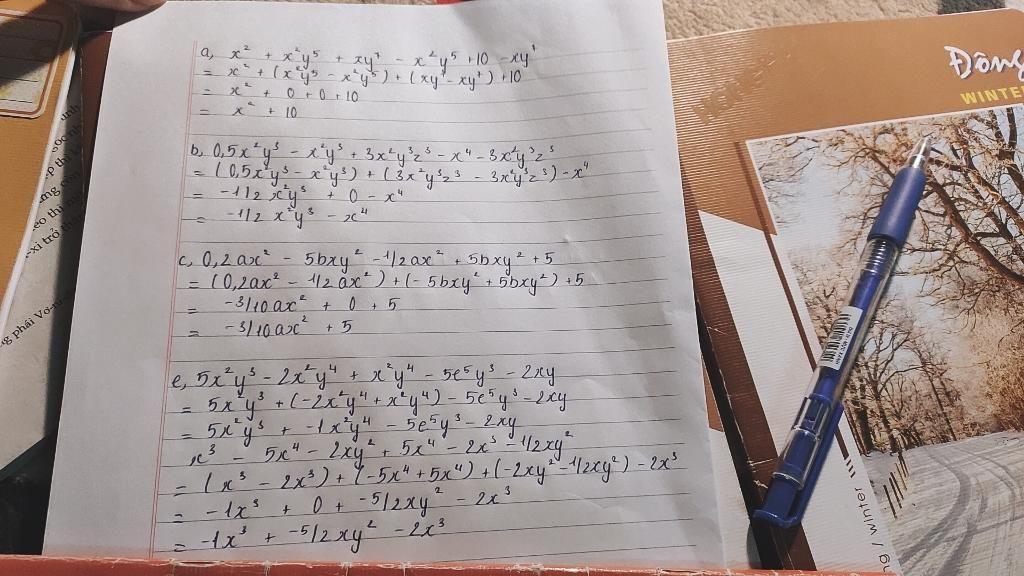 a, x² + x²y⁵ + xy⁷ - x²y⁵ + 10 - xy⁷
= x² + (x²y⁵ - x²y⁵) + (xy⁷ - xy⁷) + 10
= x² + 0 + 0 + 10
= x² + 10
b, 0,5x²y³ - x²y³ + 3x²y³z³ - x⁴ - 3x²y³z³
= (0,5x²y³ - x²y³) + (3x²y³z³ - 3x²y³z³) - x⁴
= -1/2 x²y³ + 0 - x⁴
= -1/2 x²y³ - x⁴
c, 0,2ax² - 5bxy² - 1/2ax² + 5bxy² + 5
= (0,2ax² - 1/2ax²) + (-5bxy² + 5bxy²) + 5
= -3/10ax² + 0 + 5
= -3/10ax² + 5
e, 5x²y³ - 2x²y⁴ + x²y⁴ - 5e⁵y³ - 2xy
= 5x²y³ + (-2x²y⁴ + x²y⁴) - 5e⁵y³ - 2xy
= 5x²y³ + -1x²y⁴ - 5e⁵y³ - 2xy
x³ - 5x⁴ - 2xy² + 5x⁴ - 2x³ - 1/2xy²
= (x³ - 2x³) + (-5x⁴ + 5x⁴) + (-2xy² - 1/2xy²) - 2x³
= -1x³ + 0 + -5/2xy² - 2x³
= -1x³ + -5/2xy² - 2x³
Đông
WINTER
winter
ng phái